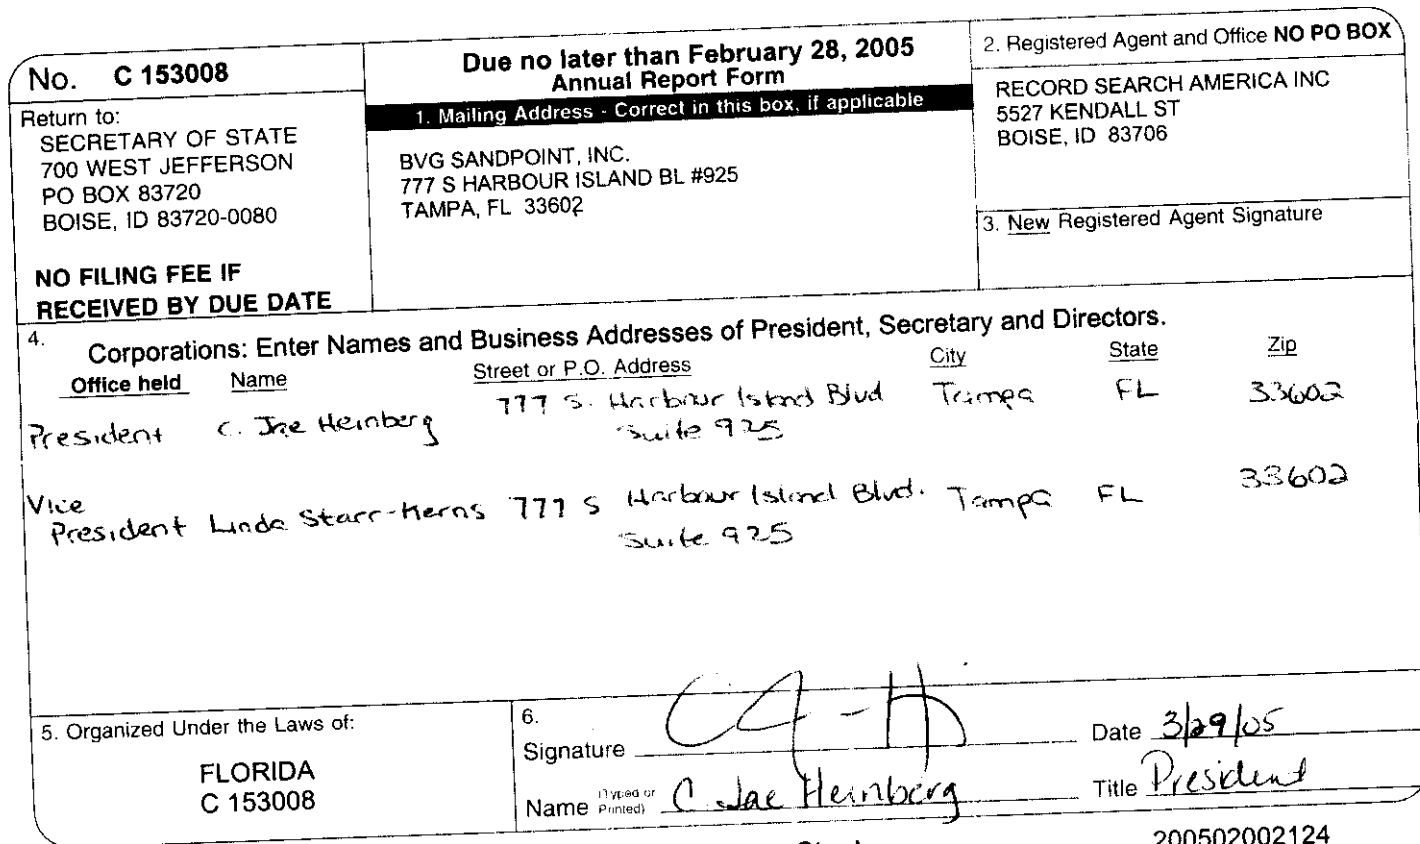 No. C 153008
Return to:
SECRETARY OF STATE
700 WEST JEFFERSON
PO BOX 83720
BOISE, ID 83720-0080
NO FILING FEE IF
RECEIVED BY DUE DATE
Due no later than February 28, 2005
Annual Report Form
1. Mailing Address - Correct in this box, if applicable
BVG SANDPOINT, INC.
777 S HARBOUR ISLAND BL #925
TAMPA, FL 33602
2. Registered Agent and Office NO PO BOX
RECORD SEARCH AMERICA INC
5527 KENDALL ST
BOISE, ID 83706
3. New Registered Agent Signature
4. Corporations: Enter Names and Business Addresses of President, Secretary and Directors.
Office held Name Street or P.O. Address City State Zip
President C. Jae Heinberg 777 S. Harbour Island Blvd Tampa FL 33602
Suite 925
Vice
President Linda Starr-Kerns 777 S Harbour Island Blvd. Tampa FL 33602
Suite 925
5. Organized Under the Laws of:
FLORIDA
C 153008
6.
Signature Date 3/29/05
Name (Typed or Printed) C. Jae Heinberg Title President
200502002124